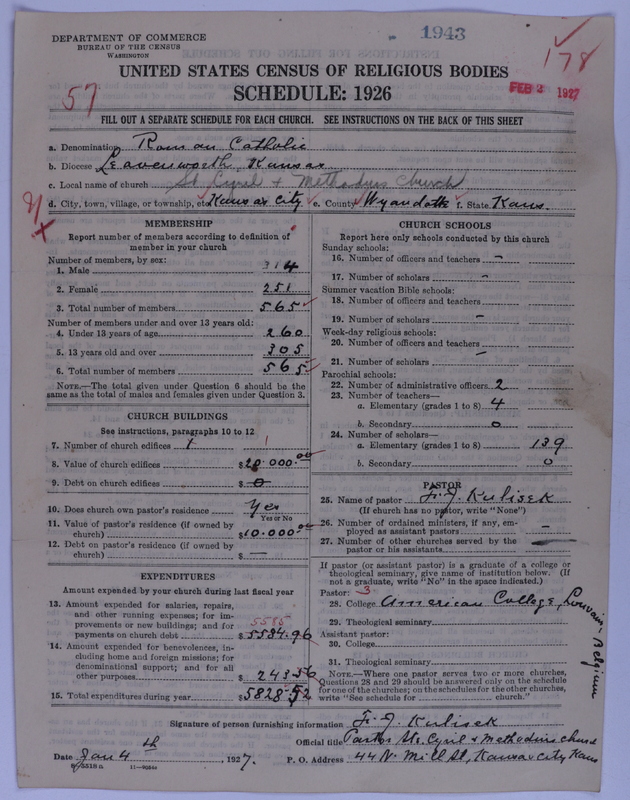 1943
DEPARTMENT OF COMMERCE
BUREAU OF THE CENSUS
WASHINGTON
178
UNITED STATES CENSUS OF RELIGIOUS BODIES
57
SCHEDULE: 1926
FEB 2 1927
FILL OUT A SEPARATE SCHEDULE FOR EACH CHURCH. SEE INSTRUCTIONS ON THE BACK OF THIS SHEET
a. Denomination Roman Catholic
b. Diocese Leavenworth, Kansas
c. Local name of church St Cyril + Methodius Church
d. City, town, village, or township, etc Kansas City e. County Wyandotte f. State Kans.
MEMBERSHIP
Report number of members according to definition of
member in your church
Number of members, by sex:
1. Male 314
2. Female 251
3. Total number of members 565
Number of members under and over 13 years old:
4. Under 13 years of age 260
5. 13 years old and over 305
6. Total number of members 565
NOTE.—The total given under Question 6 should be the
same as the total of males and females given under Question 3.
CHURCH BUILDINGS
See instructions, paragraphs 10 to 12
7. Number of church edifices 1 1
8. Value of church edifices $20.000.00
9. Debt on church edifices $ 0
10. Does church own pastor's residence Yes
Yes or No
11. Value of pastor's residence (if owned by
church) $10.000.00
12. Debt on pastor's residence (if owned by
church) $ —
EXPENDITURES
Amount expended by your church during last fiscal year
13. Amount expended for salaries, repairs,
and other running expenses; for im-
provements or new buildings; and for
5585
payments on church debt $5584.96
14. Amount expended for benevolences, in-
cluding home and foreign missions; for
denominational support; and for all
other purposes 243.56
15. Total expenditures during year $5828.52
CHURCH SCHOOLS
Report here only schools conducted by this church
Sunday schools:
16. Number of officers and teachers -
17. Number of scholars -
Summer vacation Bible schools:
18. Number of officers and teachers
19. Number of scholars -
Week-day religious schools:
20. Number of officers and teachers
21. Number of scholars -
Parochial schools:
22. Number of administrative officers 2
23. Number of teachers—
a. Elementary (grades 1 to 8) 4
b. Secondary 0
24. Number of scholars—
a. Elementary (grades 1 to 8) 139
b. Secondary 0
PASTOR
25. Name of pastor Fr. J. Kulisek
(If church has no pastor, write "None")
26. Number of ordained ministers, if any, em-
ployed as assistant pastors -
27. Number of other churches served by the
pastor or his assistants —
If pastor (or assistant pastor) is a graduate of a college or
theological seminary, give name of institution below. (If
not a graduate, write "No" in the space indicated.)
Pastor: 3
28. College American College, Louvain - Belgium
29. Theological seminary
Assistant pastor:
30. College
31. Theological seminary
NOTE.—Where one pastor serves two or more churches,
Questions 28 and 29 should be answered only on the schedule
for one of the churches; on the schedules for the other churches,
write "See schedule for church."
Signature of person furnishing information Fr. J. Kulisek
Official title Pastor Sts. Cyril + Methodius church
Date Jan 4th, 1927. P. O. Address 44 N. Mill St, Kansas City, Kans
8-5518 a 11—9034a